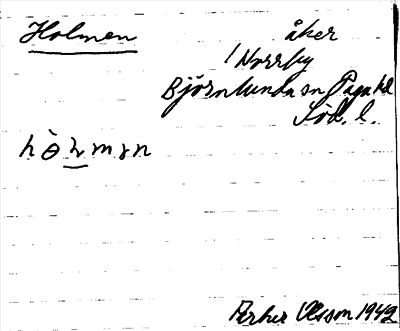 Holmen
åker
i Norrby
Björnlunda sn Daga hd
Söd. l.
hòlmən
Olsson 1942